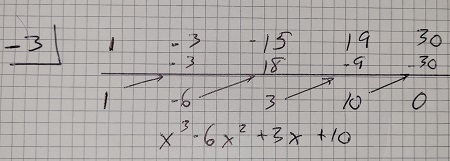 -3 1 -3 -15 19 30
-3 18 -9 -30
1 -6 3 10 0
x³-6x²+3x+10